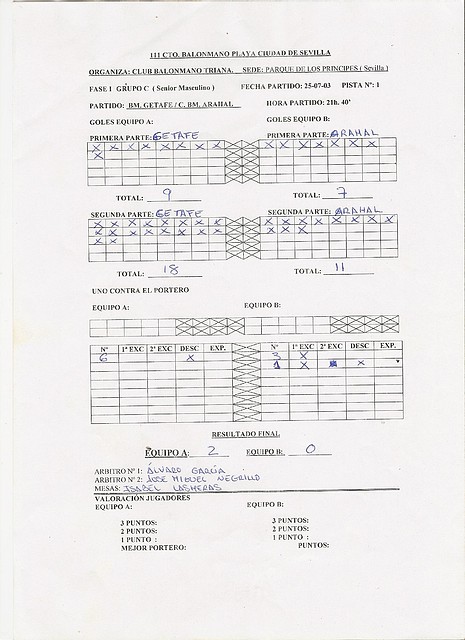 111 CTO. BALONMANO PLAYA CIUDAD DE SEVILLA
ORGANIZA: CLUB BALONMANO TRIANA. SEDE: PARQUE DE LOS PRINCIPES ( Sevilla )
FASE 1 GRUPO C ( Senior Masculino ) FECHA PARTIDO: 25-07-03 PISTA Nº: 1
PARTIDO: BM. GETAFE / C. BM. ARAHAL HORA PARTIDO: 21h. 40'
GOLES EQUIPO A: GOLES EQUIPO B:
PRIMERA PARTE: GETAFE PRIMERA PARTE: ARAHAL
X X X X X X X X X X X X X X X
X
TOTAL: 9 TOTAL: 7
SEGUNDA PARTE: GETAFE SEGUNDA PARTE: ARAHAL
X X X X X X X X X X X X X X X X
X X X X X X X X X X X
X X
TOTAL: 18 TOTAL: 11
UNO CONTRA EL PORTERO
EQUIPO A: EQUIPO B:
Nº 1ª EXC 2ª EXC DESC EXP. Nº 1ª EXC 2ª EXC DESC EXP.
6 X 3 X
1 X X
RESULTADO FINAL
EQUIPO A: 2 EQUIPO B: 0
ARBITRO Nº 1: ÁLVARO GARCÍA
ARBITRO Nº 2: JOSE MIGUEL NEGRILLO
MESAS: ISABEL LASHERAS
VALORACIÓN JUGADORES
EQUIPO A: EQUIPO B:
3 PUNTOS: 3 PUNTOS:
2 PUNTOS: 2 PUNTOS:
1 PUNTO : 1 PUNTO :
MEJOR PORTERO: PUNTOS: